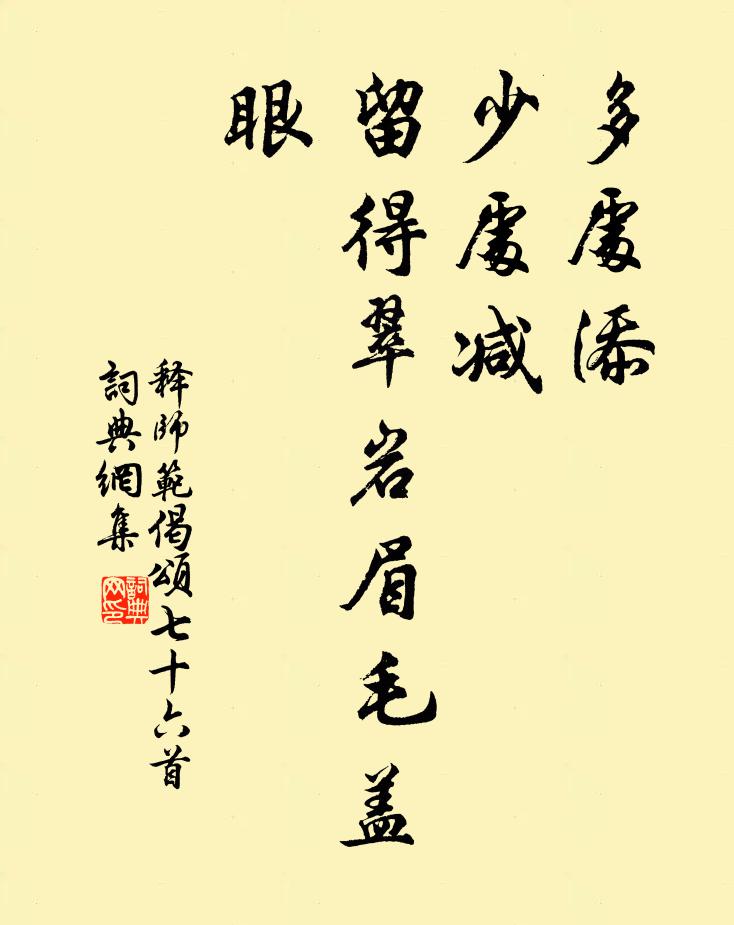 多處添
少處减
留得翠岩眉毛盖
眼
释師範偈頌七十六首
詞典網集
詞典网印